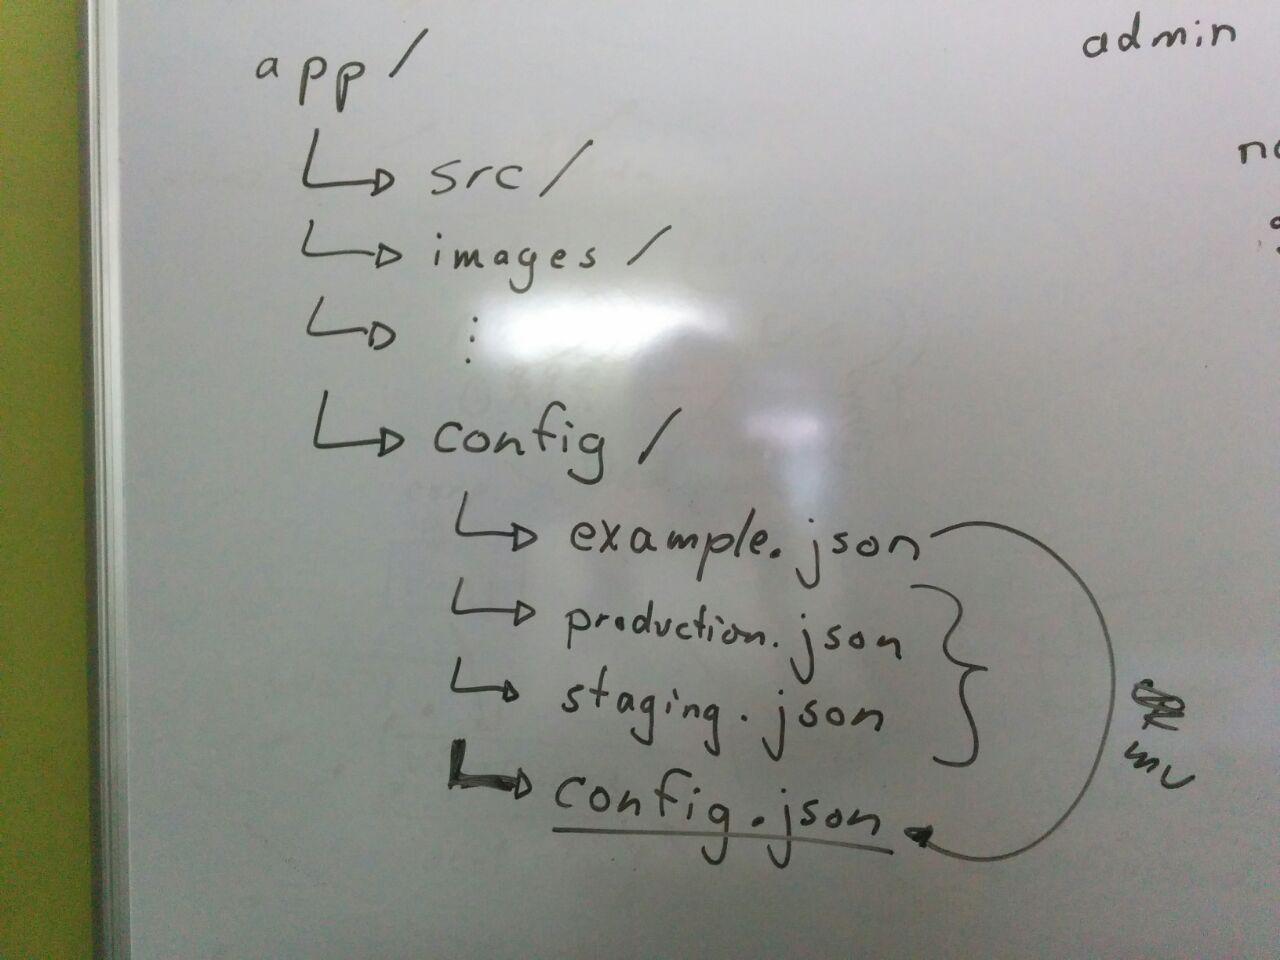 app/
src/
images/
⋮
config/
example.json
production.json
staging.json
config.json
mv
admin